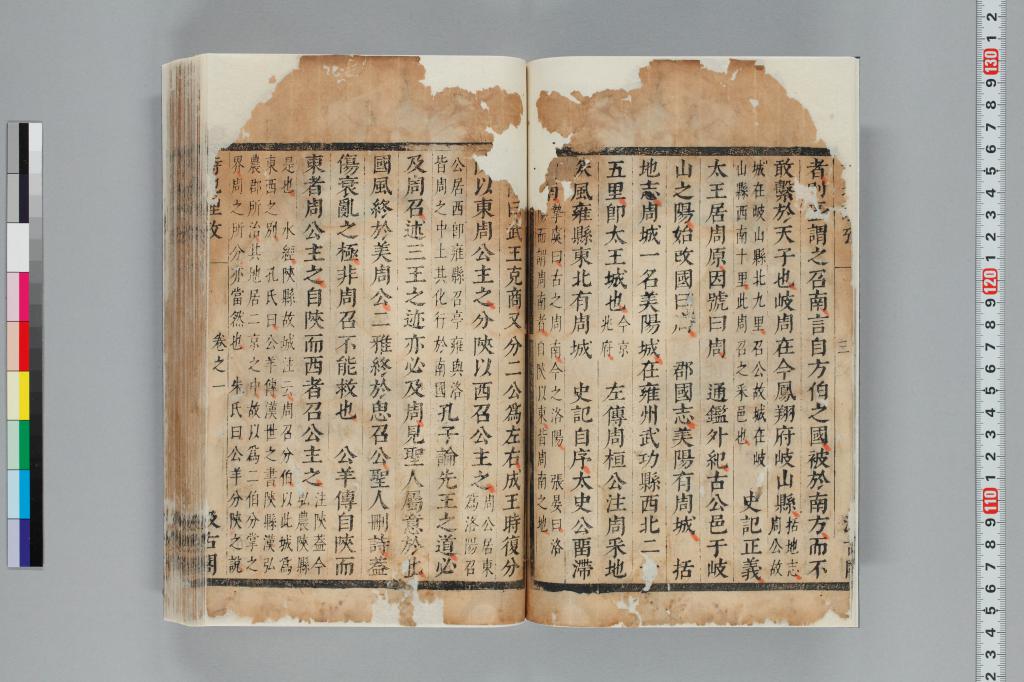 謂之召南言自方伯之國被於南方而不
敢繫於天子也岐周在今鳳翔府岐山縣括地志周公故
城在岐山縣北九里召公故城在岐山縣西南十里此周召之采邑也 史記正義
太王居周原因號曰周 通鑑外紀古公邑于岐
山之陽始改國曰周 郡國志美陽有周城 括
地志周城一名美陽城在雍州武功縣西北二
五里卽太王城也今京兆府 左傳周桓公注周采地
扶風雍縣東北有周城 史記自序太史公留滯
周南摯虞曰古之周南今之洛陽 張晏曰洛陽而謂周南者自陝以東皆周南之地
曰武王克商又分二公爲左右成王時復分
以東周公主之分陝以西召公主之周公居東爲洛陽召
公居西卽雍縣召亭雍與洛皆周之中土其化行於南國 孔子論先王之道必
及周召述三王之迹亦必及周見聖人屬意於此
國風終於美周公二雅終於思召公聖人刪詩蓋
傷衰亂之極非周召不能救也 公羊傳自陝而
東者周公主之自陝而西者召公主之注陝蓋今弘農陝縣
是也 水經陝縣故城注云周召分伯以此城爲東西之別 孔氏曰公羊傳漢世之書陝縣漢弘
農郡所治其地居二京之中故以爲二伯分掌之界周之所分亦當然也 朱氏曰公羊分陝之說
卷之一
汲古閣
三